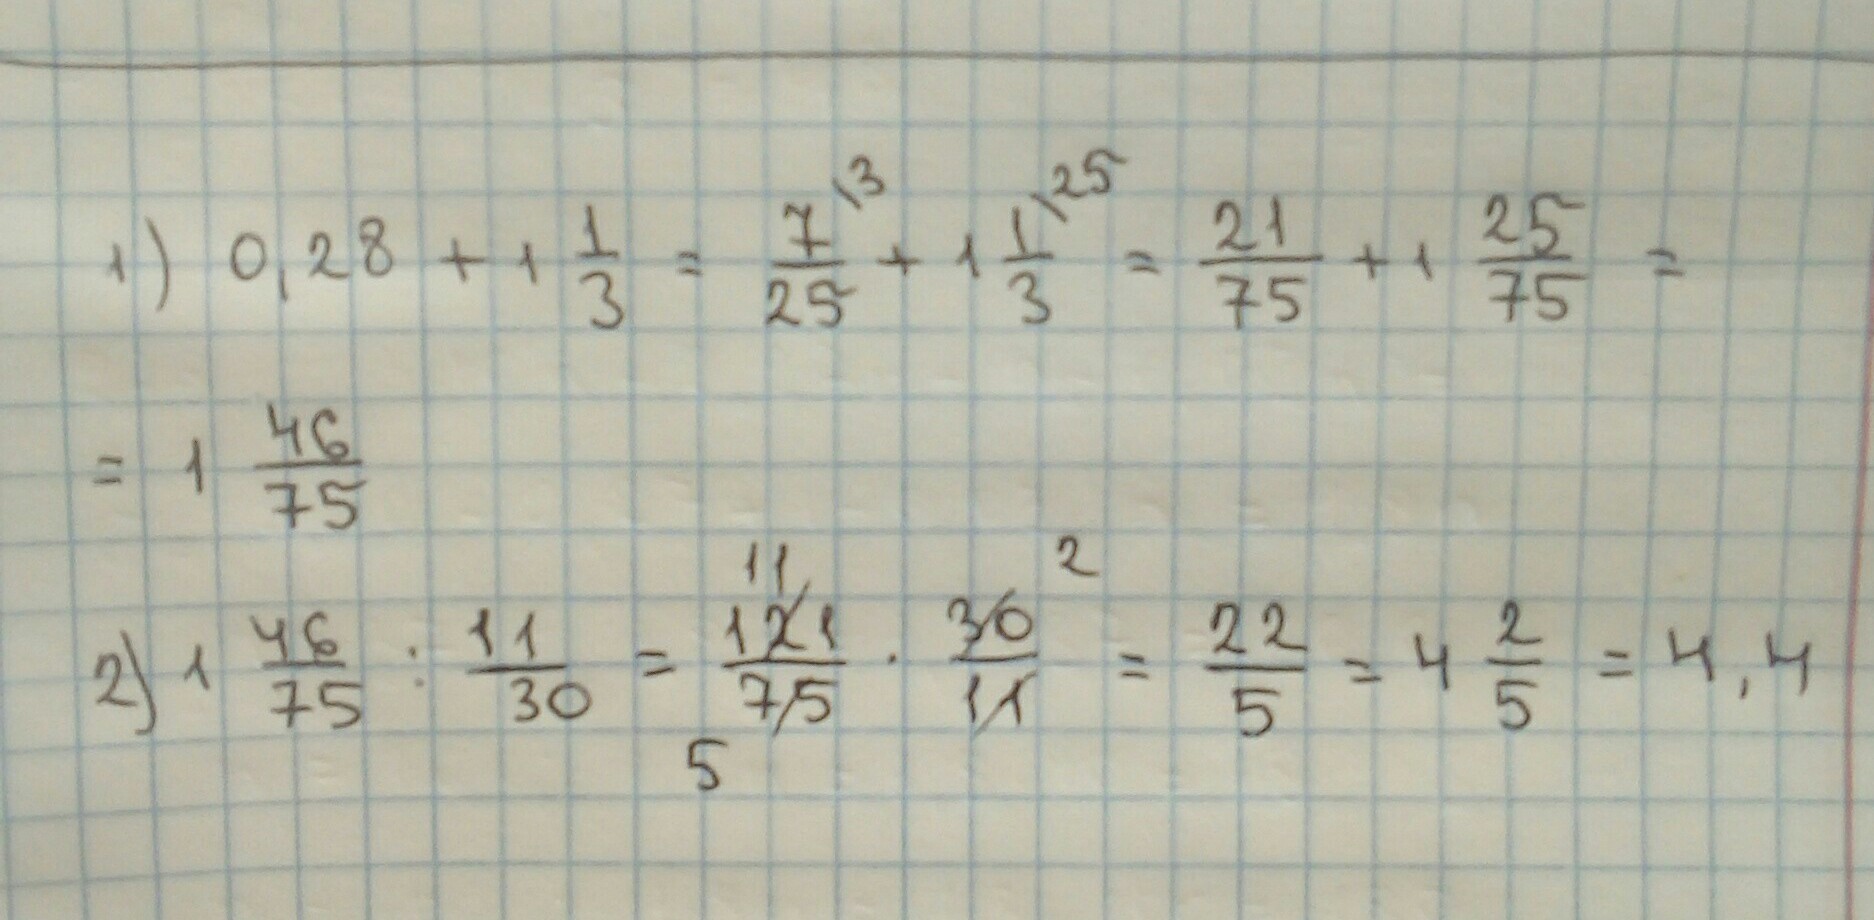 1) 0,28 + 1 1/3 = 7/25 \3 + 1 1/3 \25 = 21/75 + 1 25/75 =
= 1 46/75
2) 1 46/75 : 11/30 = 11 121/75 5 · 30/11 2 = 22/5 = 4 2/5 = 4,4